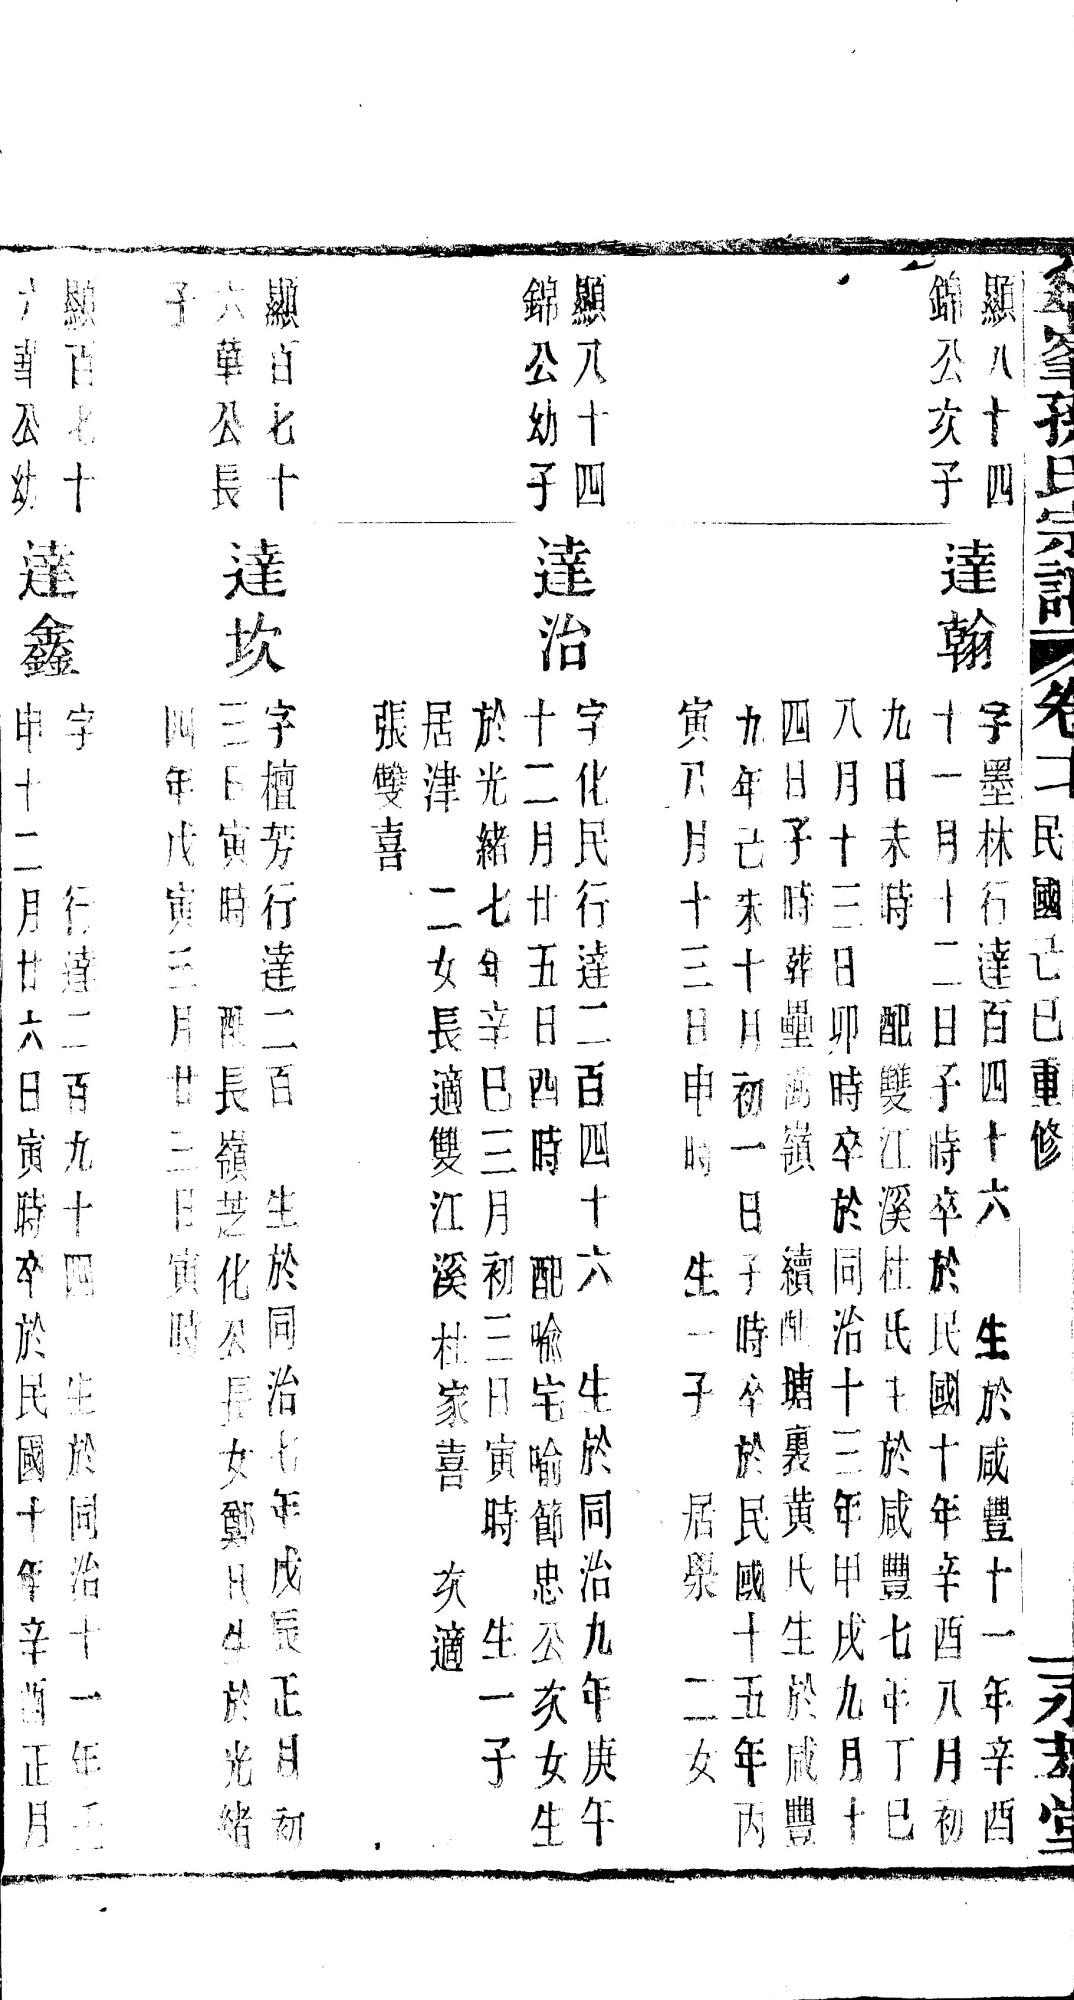 峯孫氏宗譜 卷十 民國己巳重修 永慕堂
顯八十四
錦公次子
達翰
字墨林行達百四十六 生於咸豐十一年辛酉
十一月十二日子時卒於民國十年辛酉八月初
九日未時 配雙江溪杜氏生於咸豐七年丁巳
八月十三日卯時卒於同治十三年甲戌九月十
四日子時葬壘嶺 續配塘裏黃氏生於咸豐
九年己未十月初一日子時卒於民國十五年丙
寅八月十三日申時 生一子 居榮 二女
顯八十四
錦公幼子
達治
字化民行達二百四十六 生於同治九年庚午
十二月廿五日酉時 配喻宅喻節忠公次女生
於光緒七年辛巳三月初三日寅時 生一子
居津 二女長適雙江溪杜家喜 次適
張雙喜
顯百七十
六華公長
子
達坎
字檀芳行達二百 生於同治七年戊辰正月初
三日寅時 配長嶺芝化公長女鄭氏生於光緒
四年戊寅三月廿三日寅時
顯百七十
六華公幼
達鑫
字 行達二百九十四 生於同治十一年壬
申十二月廿六日寅時卒於民國十年辛酉正月